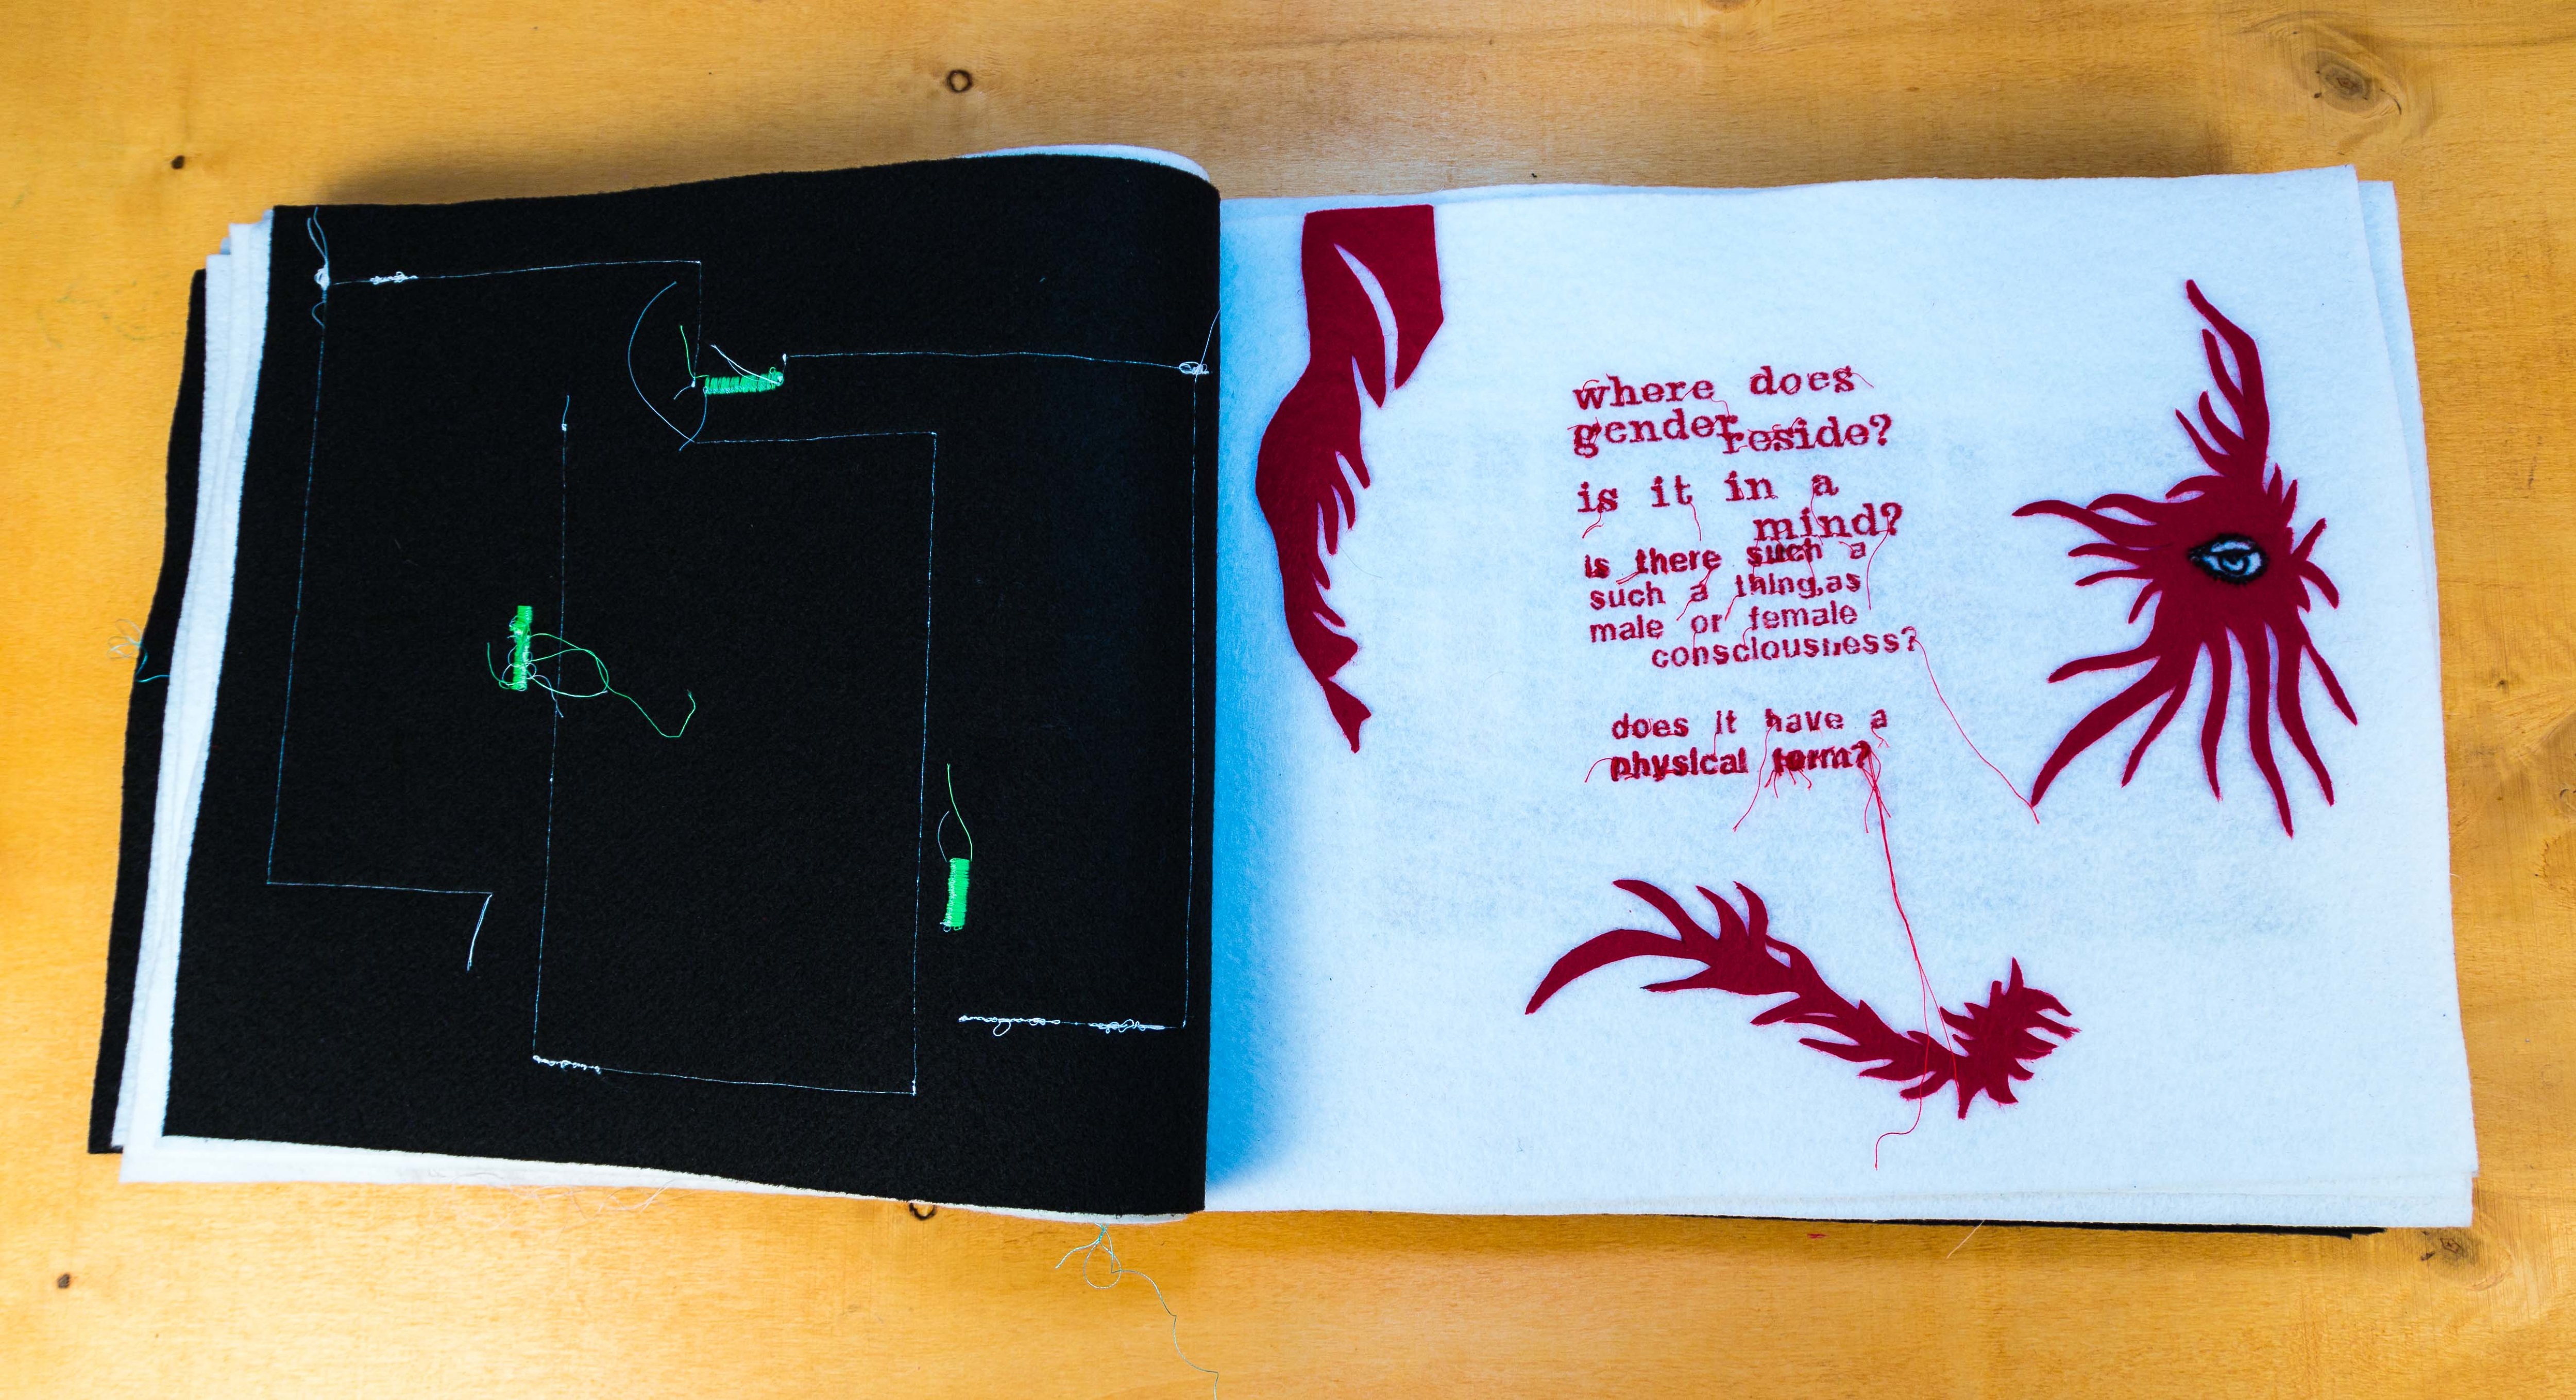 where does
gender reside?
is it in a
mind?
is there such a
such a thing,as
male or female
consciousness?
does it have a
physical form?